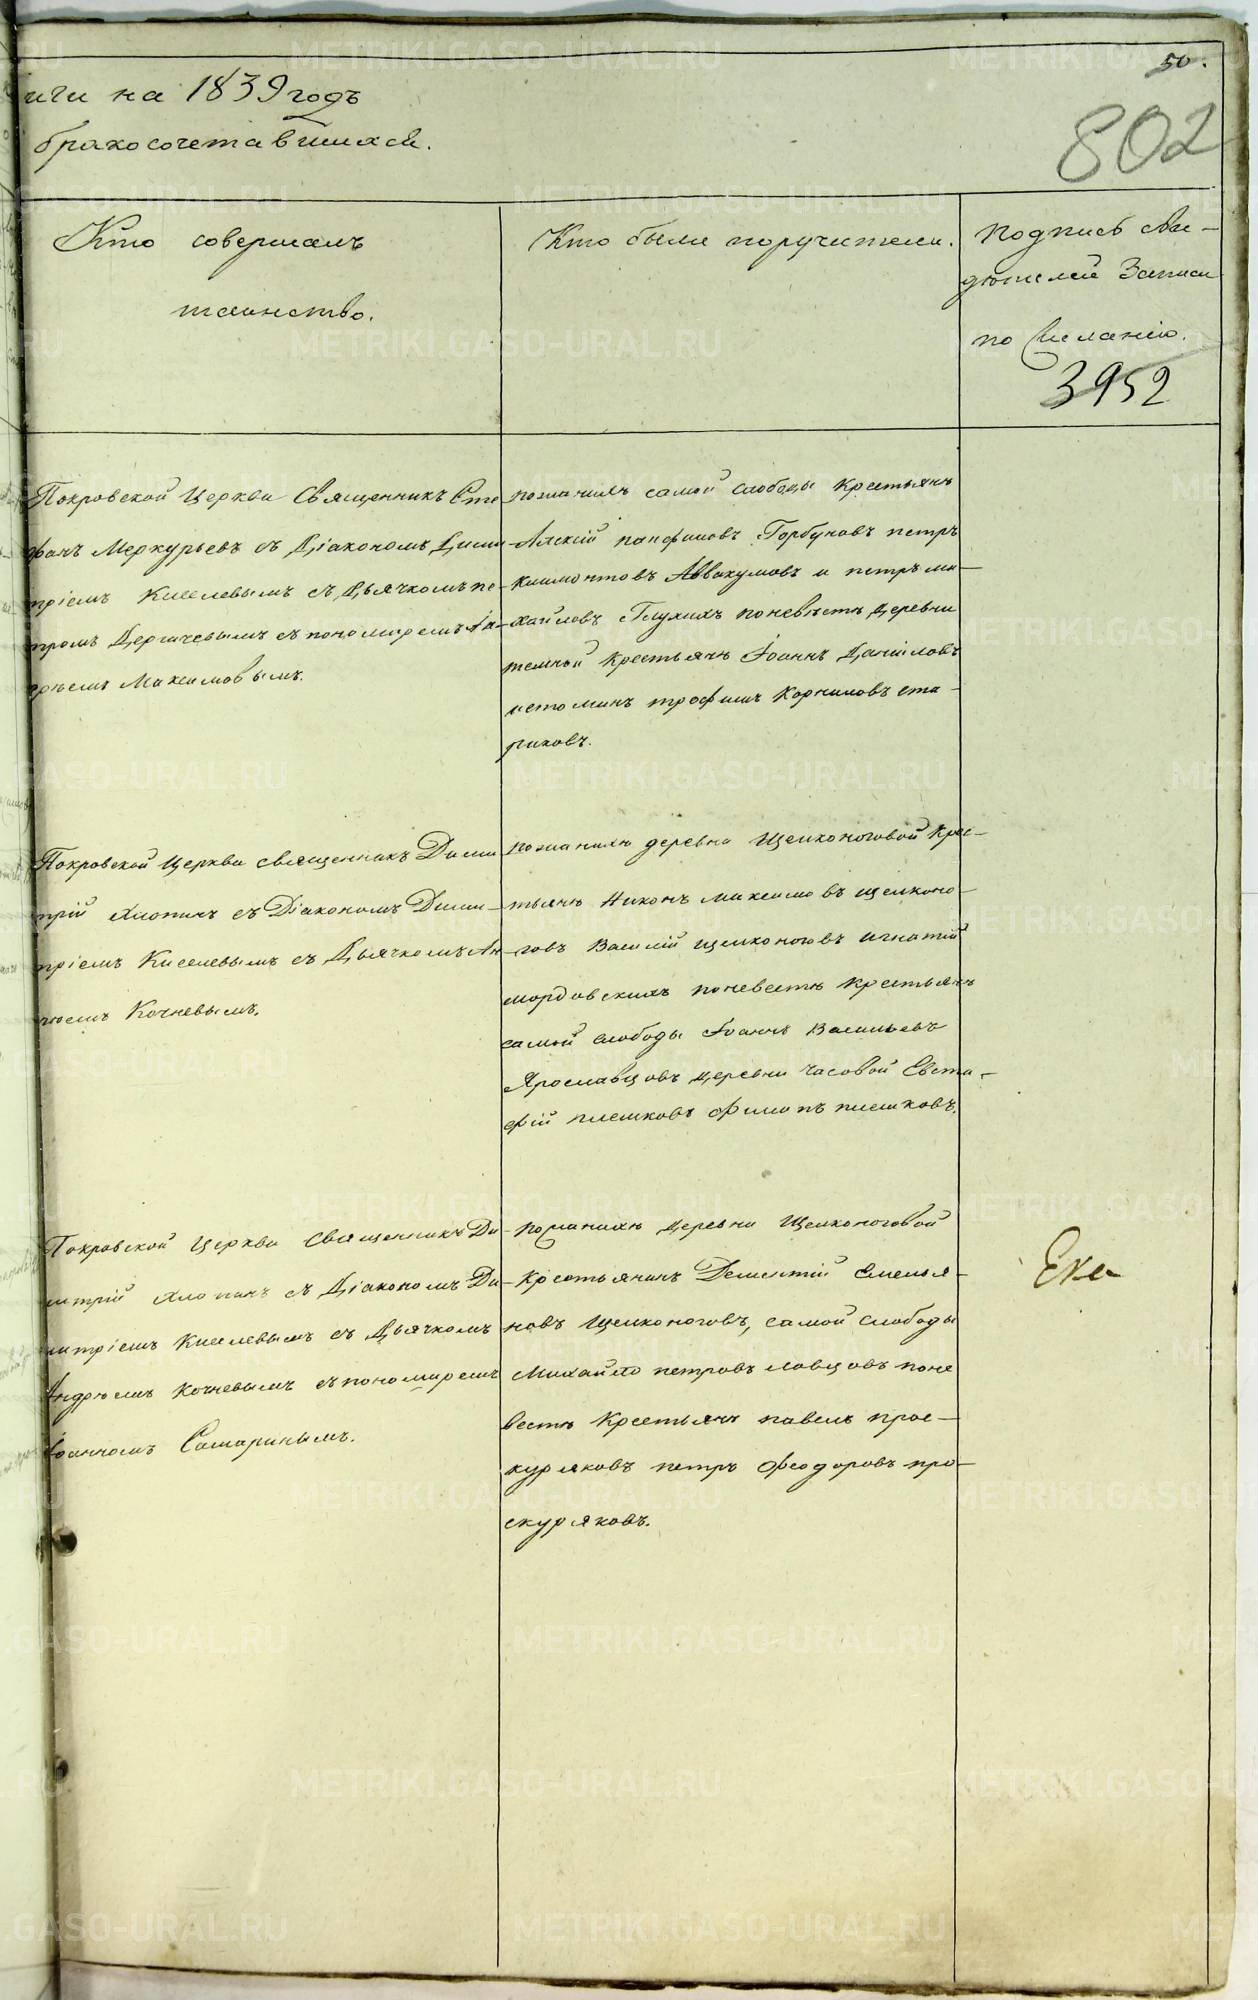 50.
иги на 1839 годъ
802
бракосочетавшихся.
Кто совершалъ
таинство.
Кто были поручители.
Подпись сви-
дѣтелей записи
по желанію.
3952
Покровской Церкви Священникъ Сте
фанъ Меркурьевъ съ Діакономъ Дими
тріемъ Киселевымъ съ Дьячкомъ пе
тромъ Дергачевымъ съ пономаремъ
Максимовымъ.
пожанихѣ самой слободы крестьянъ
Алексій панфиловъ Горбуновъ петръ
Климонтовъ Аввакумовъ и петръ ми-
хайловъ Глухихъ поневѣстѣ деревни
темной крестьянѣ Іоаннъ Даніиловъ
истоминъ трофимъ Корниловъ ста-
риковъ.
Покровской Церкви священникъ Дими
трій Хлопинъ съ Діакономъ Дими-
тріемъ Киселевымъ съ Дьячкомъ Ан
реемъ Кочневымъ.
пожанихѣ деревни Щелконоговой крес-
тьянѣ Никонъ максимовъ щелконо-
говъ Василій щелконоговъ игнатій
мордовскихъ поневестѣ крестьянъ
самой слободы Іоаннъ Васильевъ
Ярославцовъ деревни часовой Евста-
фій плешковъ Филипъ плешковъ.
Покровской Церкви Священникъ Ди
митрій Хлопинъ съ Діакономъ Ди
митріемъ Киселевымъ съ Дьячкомъ
Андреемъ Кочневымъ съ пономаремъ
Іоанномъ Самаринымъ.
пожанихѣ деревни Щелконоговой
Крестьянинъ Дементій Емелья-
новъ Щелконоговъ, самой слободы
Михайло петровъ ловцовъ поне
вестѣ Крестьянъ павелъ прос-
куряковъ петръ Феодоровъ про-
скуряковъ.
Ека
METRIKI.GASO-URAL.RU